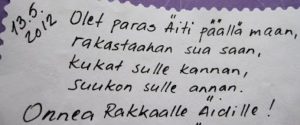 13.5.
2012
Olet paras Äiti päällä maan,
rakastaahan sua saan,
kukat sulle kannan,
suukon sulle annan.
Onnea Rakkaalle Äidille!